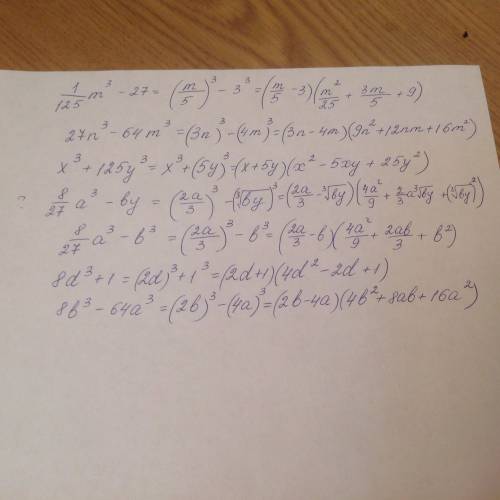 1/125 m³ - 27 = (m/5)³ - 3³ = (m/5 - 3)(m²/25 + 3m/5 + 9)
27n³ - 64m³ = (3n)³ - (4m)³ = (3n - 4m)(9n² + 12nm + 16m²)
x³ + 125y³ = x³ + (5y)³ = (x + 5y)(x² - 5xy + 25y²)
? 8/27 a³ - by = (2a/3)³ - (∛by)³ = (2a/3 - ∛by)(4a²/9 + 2/3 a∛by + (∛by)²)
8/27 a³ - b³ = (2a/3)³ - b³ = (2a/3 - b)(4a²/9 + 2ab/3 + b²)
8d³ + 1 = (2d)³ + 1³ = (2d + 1)(4d² - 2d + 1)
8b³ - 64a³ = (2b)³ - (4a)³ = (2b - 4a)(4b² + 8ab + 16a²)